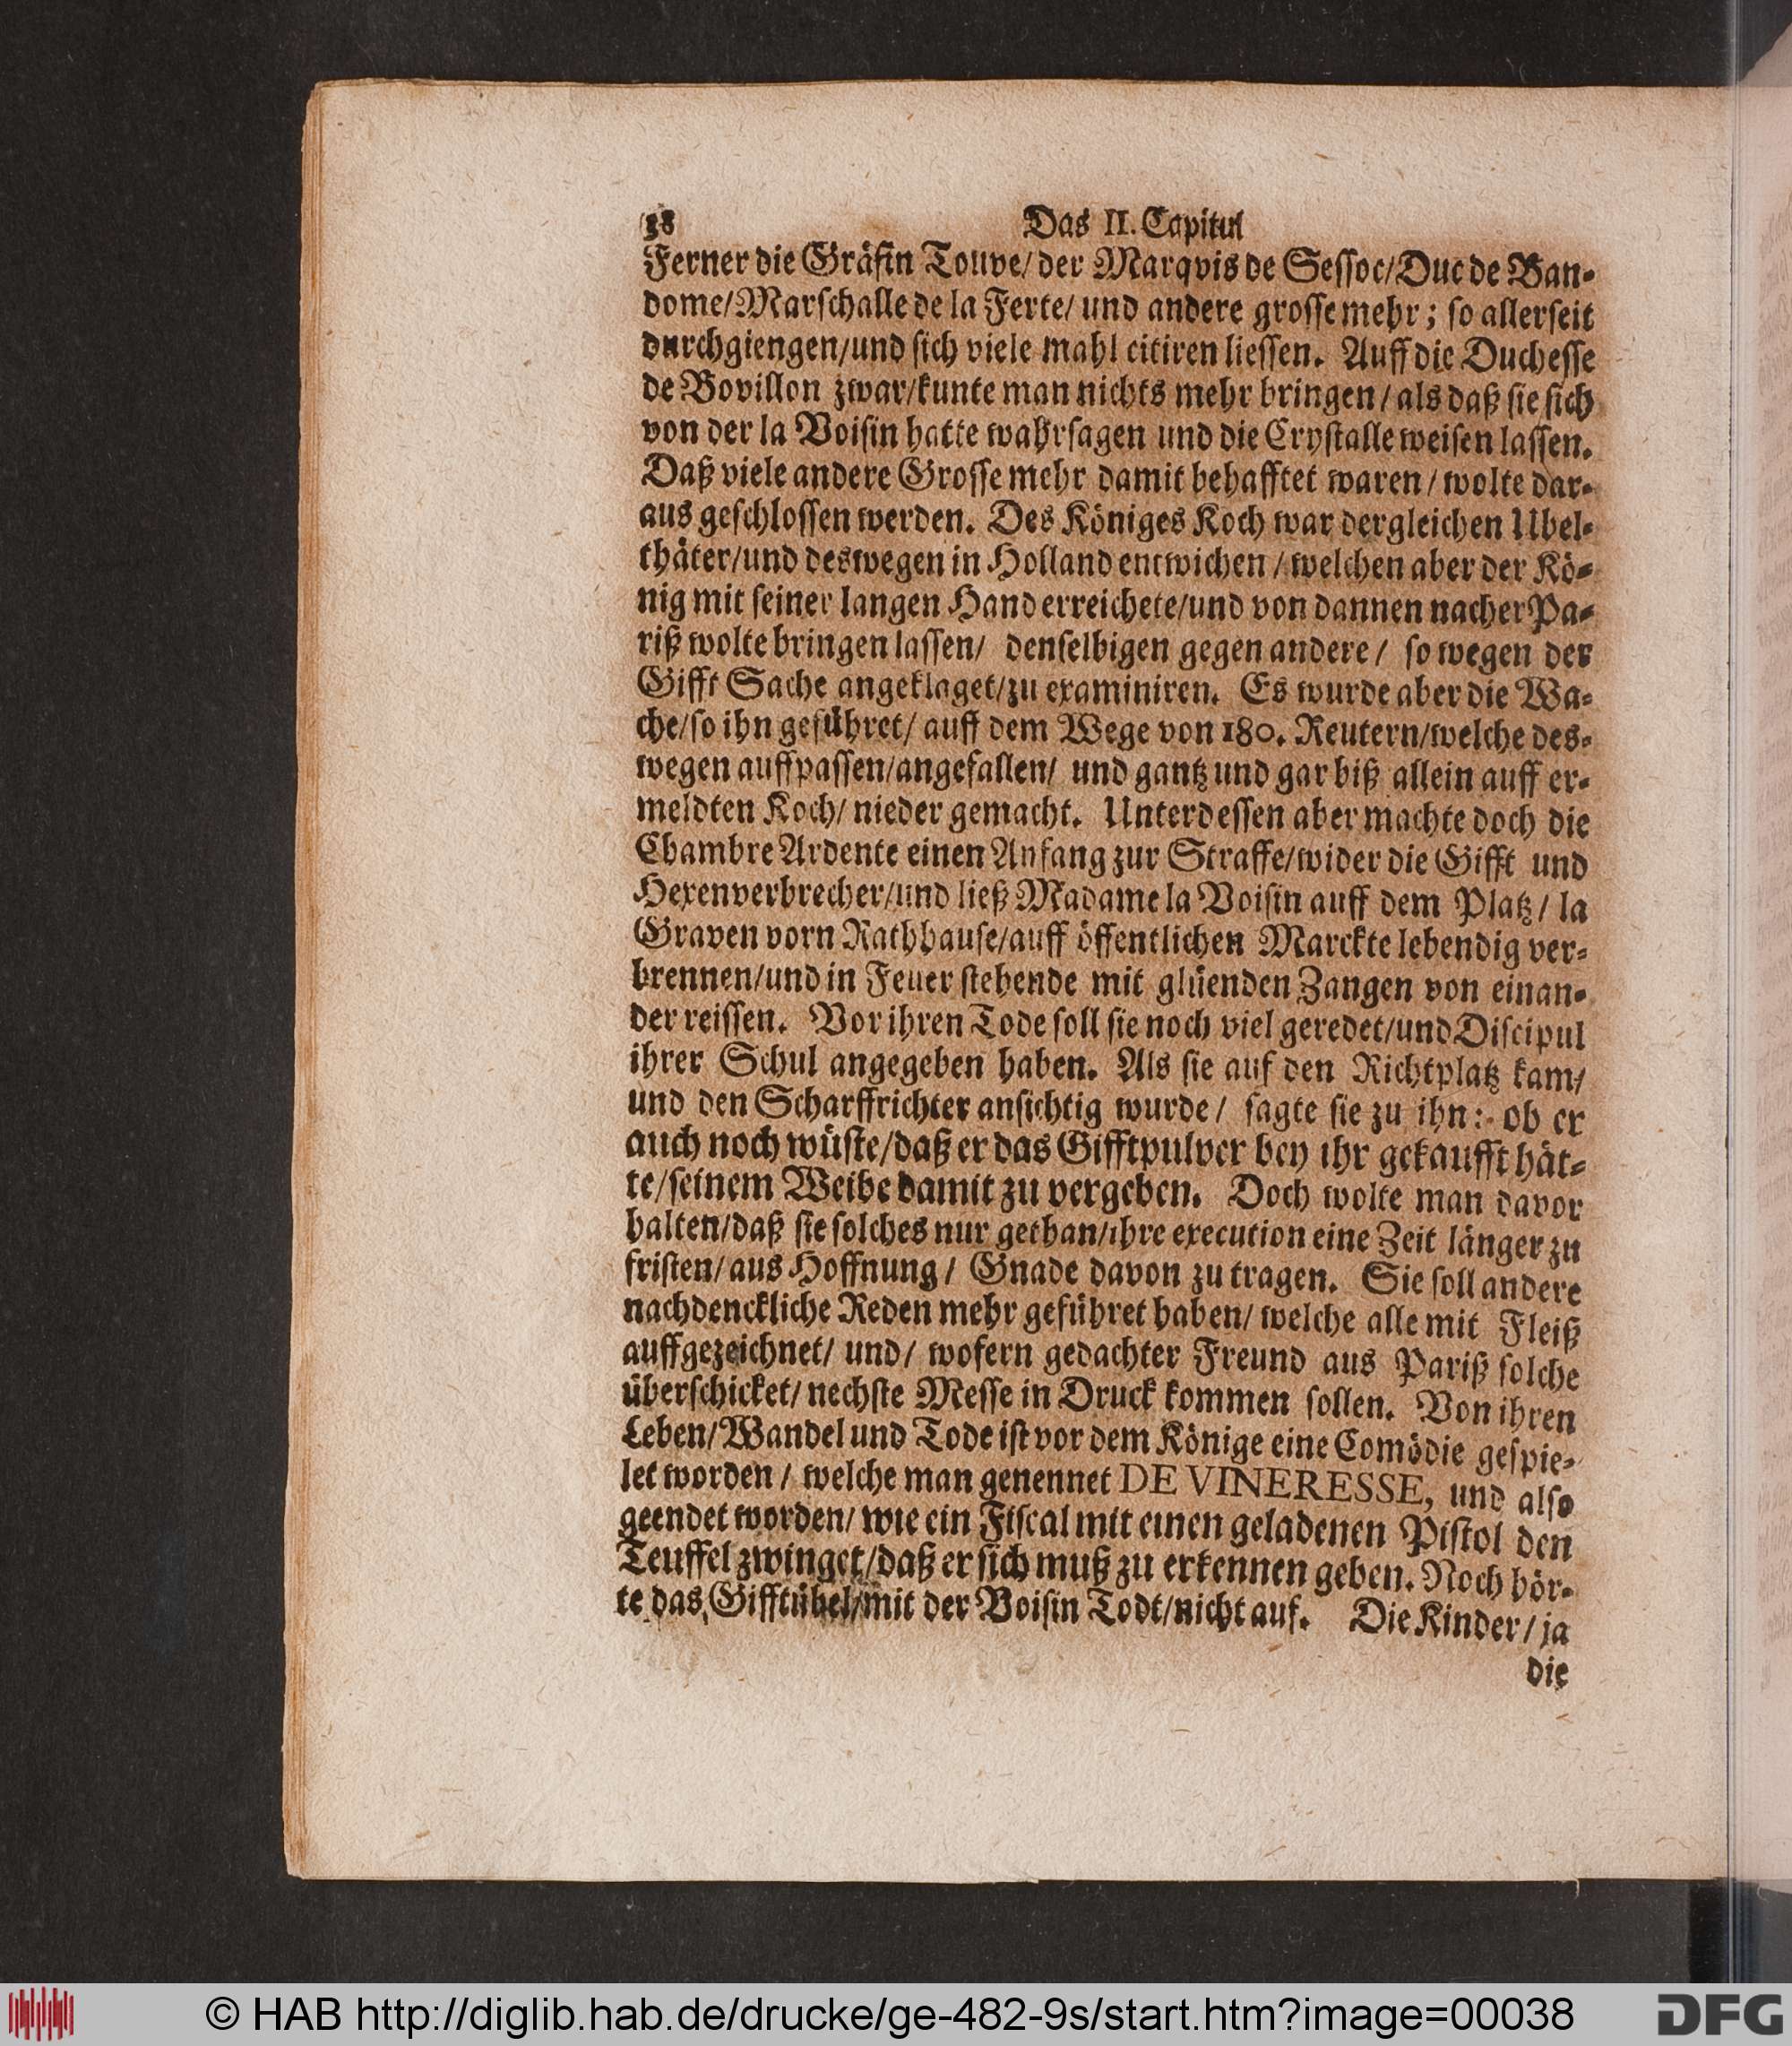 38 Das II. Capitul
Ferner die Gräfin Touve/ der Marqvis de Sessoc/Duc de Ban-
dome/Marschalle de la Ferte/ und andere grosse mehr; so allerseit
durchgiengen/und sich viele mahl citiren liessen. Auff die Duchesse
de Bovillon zwar/kunte man nichts mehr bringen/ als daß sie sich
von der la Voisin hatte wahrsagen und die Crystalle weisen lassen.
Daß viele andere Grosse mehr damit behafftet waren/ wolte dar-
aus geschlossen werden. Des Königes Koch war dergleichen Ubel-
thäter/und deswegen in Holland entwichen/ welchen aber der Kö-
nig mit seiner langen Hand erreichete/und von dannen nacher Pa-
riß wolte bringen lassen/ denselbigen gegen andere/ so wegen der
Gifft Sache angeklaget/zu examiniren. Es wurde aber die Wa-
che/so ihn geführet/ auff dem Wege von 180. Reutern/welche des-
wegen auffpassen/angefallen/ und gantz und gar biß allein auff er-
meldten Koch/ nieder gemacht. Unterdessen aber machte doch die
Chambre Ardente einen Anfang zur Straffe/wider die Gifft und
Hexenverbrecher/und ließ Madame la Voisin auff dem Platz/ la
Graven vorn Rathhause/auff öffentlichen Marckte lebendig ver-
brennen/und in Feuer stehende mit glüenden Zangen von einan-
der reissen. Vor ihren Tode soll sie noch viel geredet/und Discipul
ihrer Schul angegeben haben. Als sie auf den Richtplatz kam/
und den Scharffrichter ansichtig wurde/ sagte sie zu ihn: ob er
auch noch wüste/daß er das Gifftpulver bey ihr gekaufft hät-
te/seinem Weibe damit zu vergeben. Doch wolte man davor
halten/daß sie solches nur gethan/ihre execution eine Zeit länger zu
fristen/aus Hoffnung/ Gnade davon zu tragen. Sie soll andere
nachdenckliche Reden mehr geführet haben/ welche alle mit Fleiß
auffgezeichnet/ und/ wofern gedachter Freund aus Pariß solche
überschicket/ nechste Messe in Druck kommen sollen. Von ihren
Leben/Wandel und Tode ist vor dem Könige eine Comödie gespie-
let worden/ welche man genennet DE VINERESSE, und also
geendet worden/ wie ein Fiscal mit einen geladenen Pistol den
Teuffel zwinget/daß er sich muß zu erkennen geben. Noch hör-
te das Gifftübel/mit der Voisin Todt/nicht auf. Die Kinder/ ja
die
© HAB http://diglib.hab.de/drucke/ge-482-9s/start.htm?image=00038
DFG